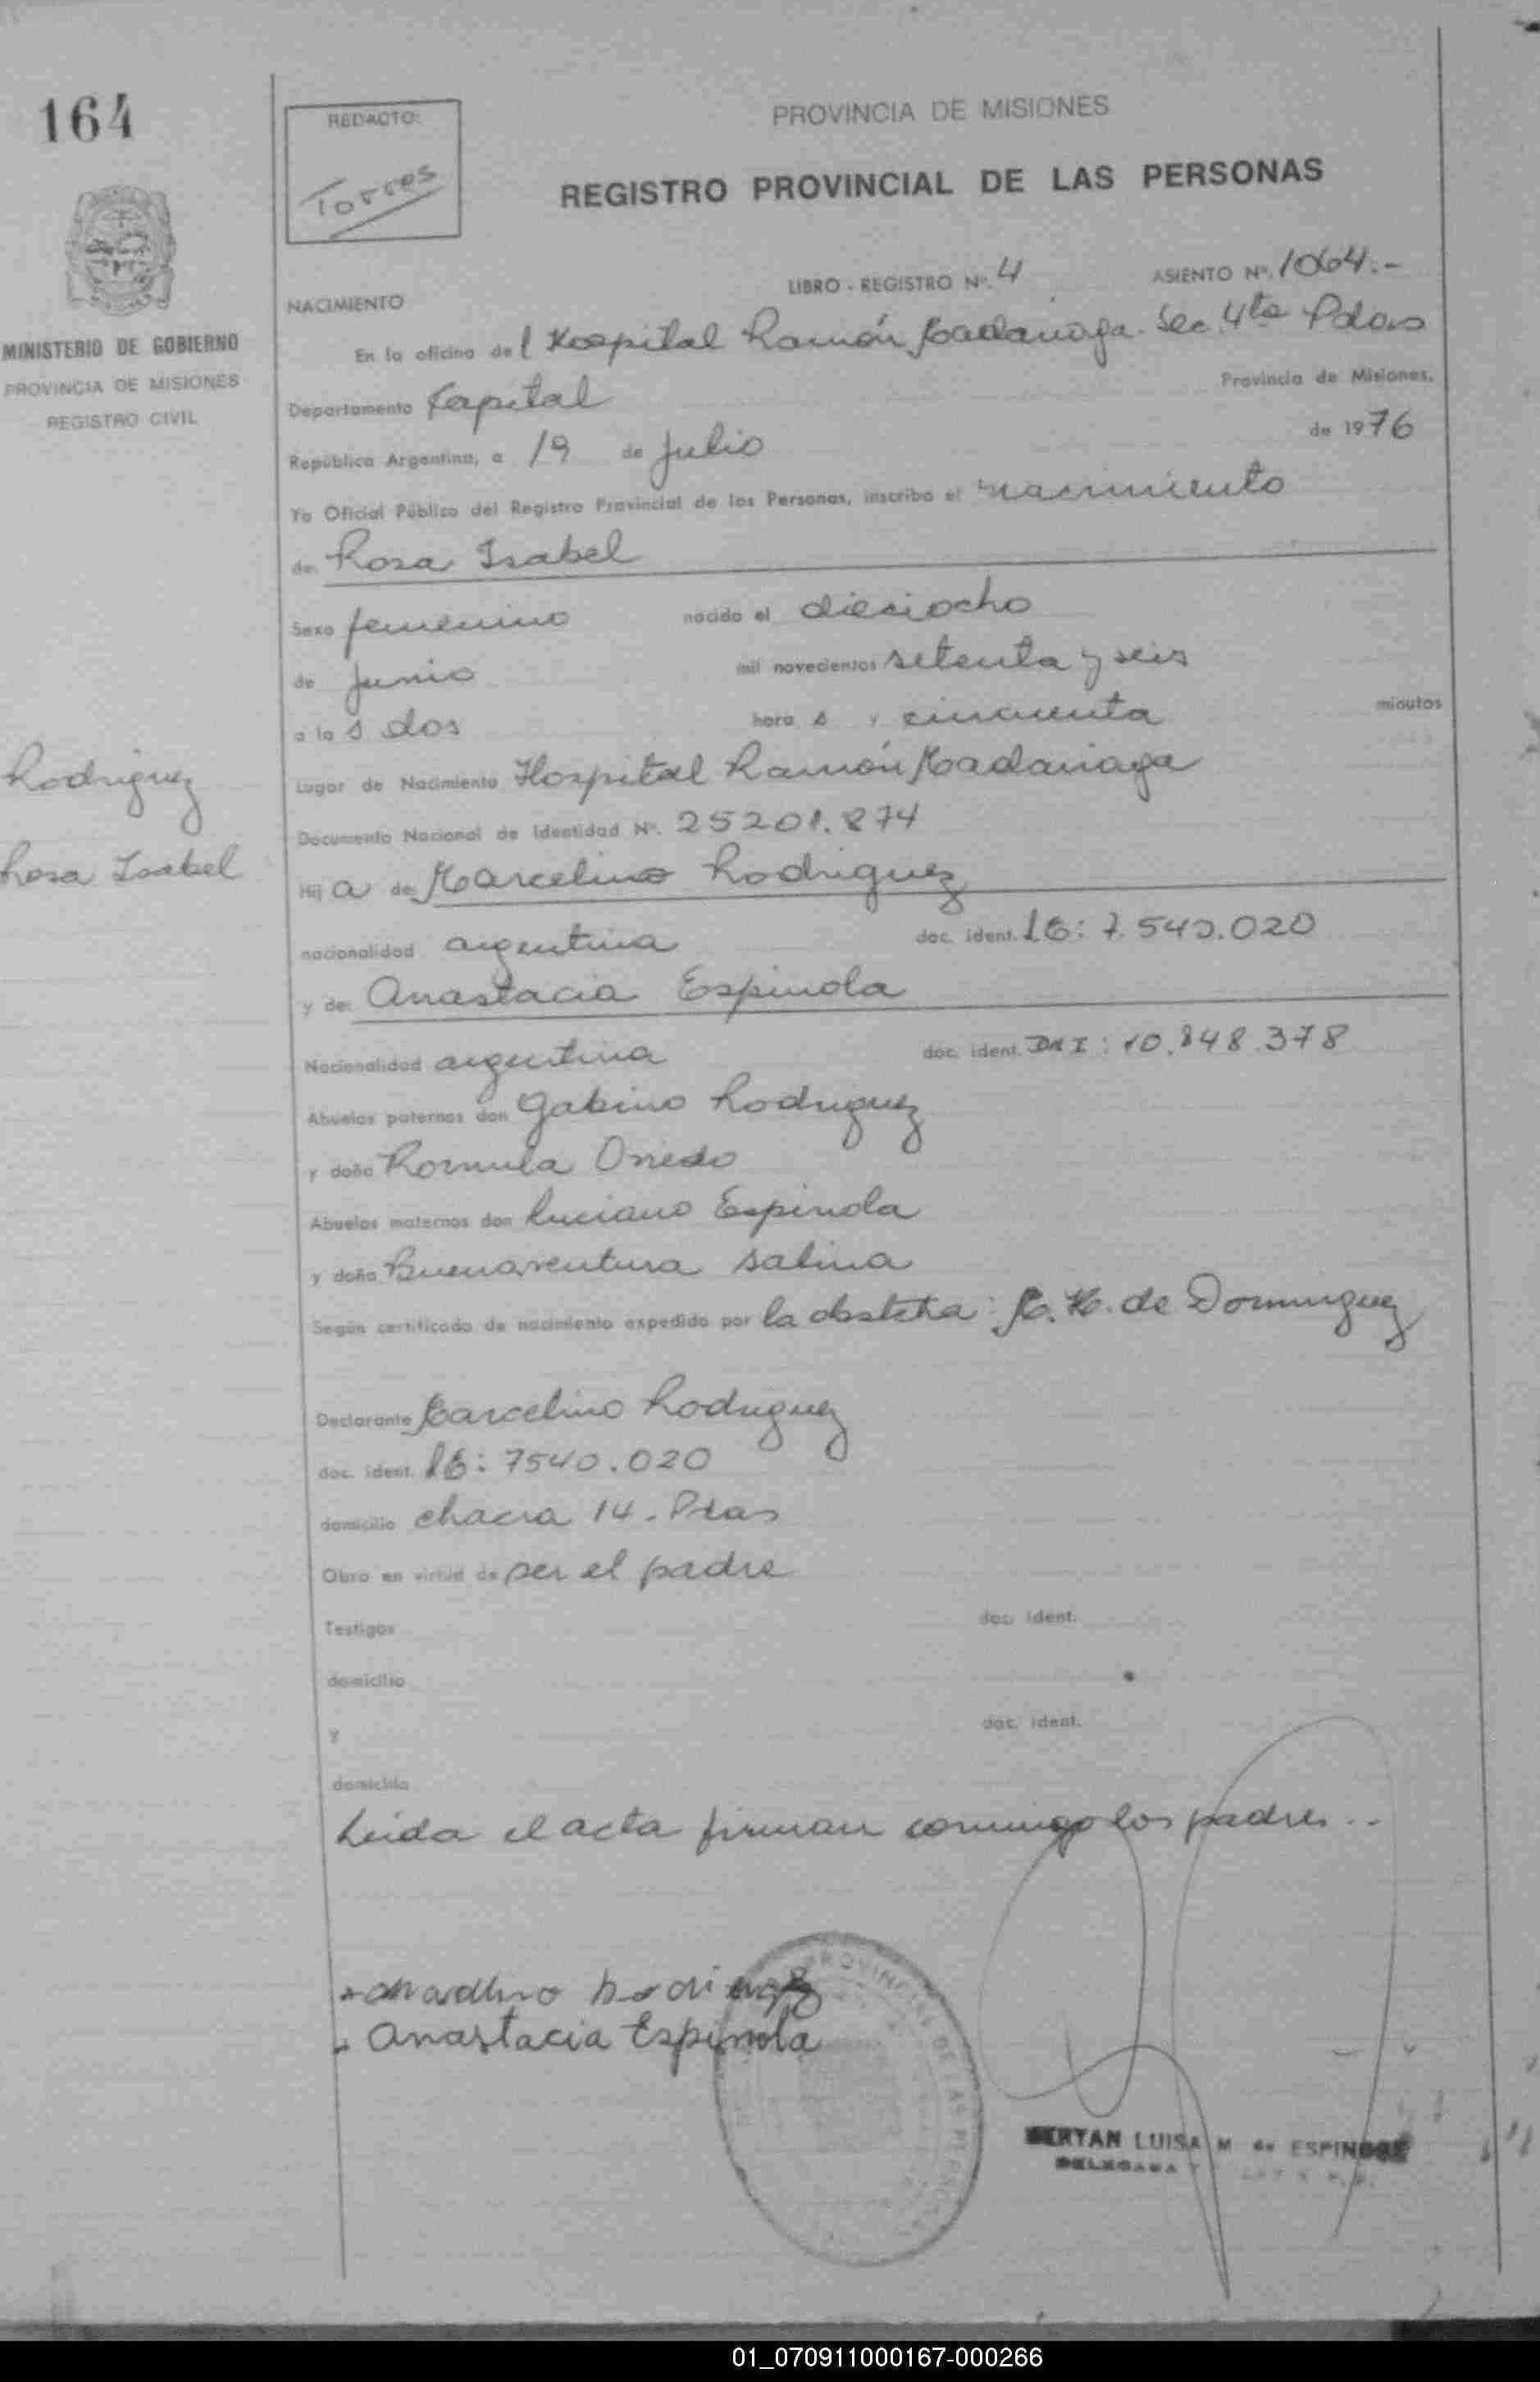 164
REDACTO:
Torres
PROVINCIA DE MISIONES
REGISTRO PROVINCIAL DE LAS PERSONAS
MINISTERIO DE GOBIERNO
PROVINCIA DE MISIONES
REGISTRO CIVIL
LIBRO - REGISTRO Nº. 4 ASIENTO Nº. 1064.-
NACIMIENTO
En la oficina del Hospital Ramón Madariaga. Sec. 4ta Pdas
Departamento Capital Provincia de Misiones.
República Argentina, a 19 de Julio de 1976
Yo Oficial Público del Registro Provincial de las Personas, inscribo el nacimiento
de: Rosa Isabel
Sexo femenino nacido el dieciocho
de junio mil novecientos setenta y seis
a las dos horas y cincuenta minutos
Rodriguez
Rosa Isabel
Lugar de Nacimiento Hospital Ramón Madariaga
Documento Nacional de Identidad Nº. 25201.874
Hija de: Marcelino Rodriguez
nacionalidad argentina doc. ident. LE: 7.540.020
y de: Anastacia Espinola
Nacionalidad argentina doc. ident. DNI: 10.848.378
Abuelos paternos don Gabino Rodriguez
y doña Romula Oviedo
Abuelos maternos don Luciano Espinola
y doña Buenaventura Salina
Según certificado de nacimiento expedido por la obstetra: M. H. de Dominguez
Declarante Marcelino Rodriguez
doc. ident. LE: 7540.020
domicilio chacra 14. Pdas
Obra en virtud de ser el padre
Testigos doc. ident.
domicilio
y doc. ident.
domicilio
Leida el acta firman conmigo los padres..
Anastacia Espinola
LUISA M de
01_070911000167-000266